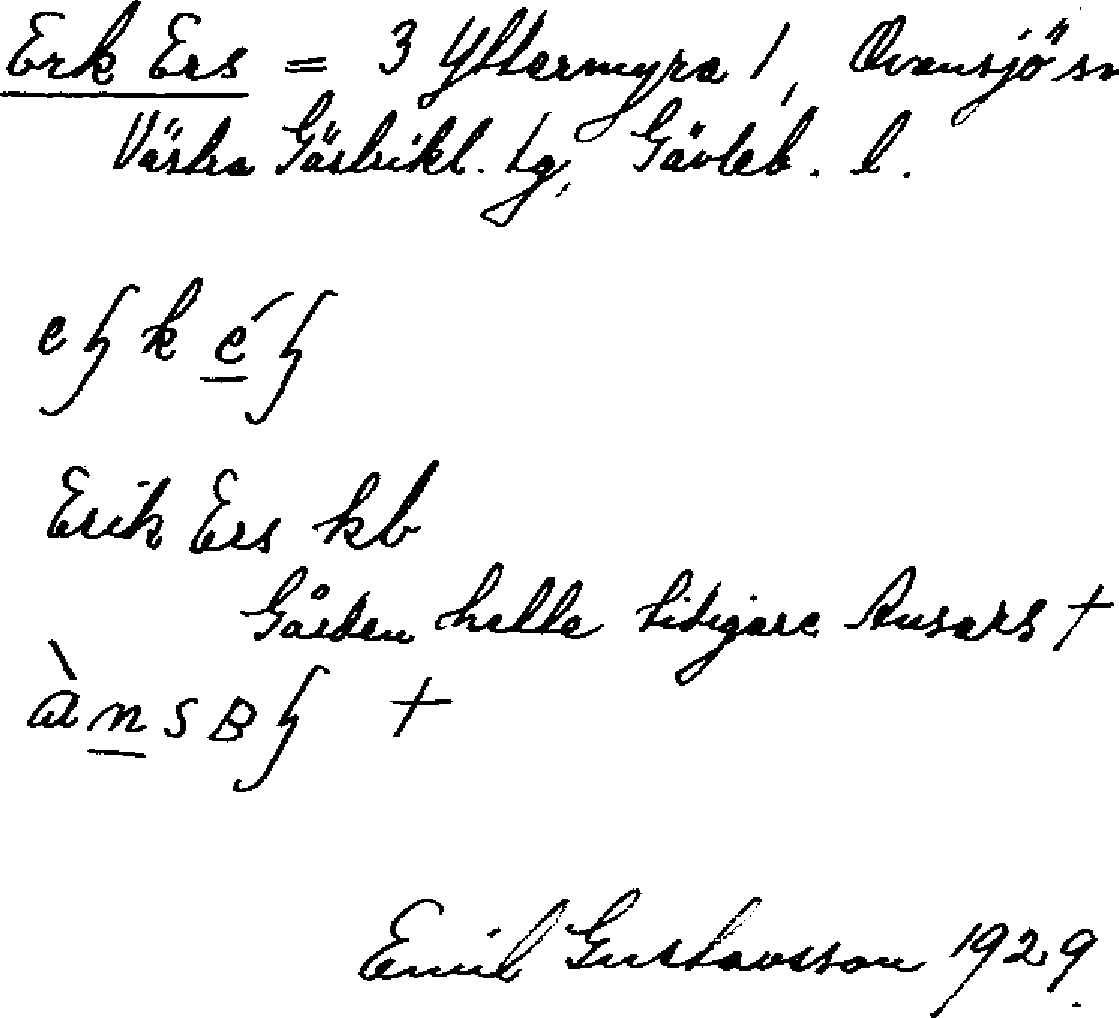 Erk Ers = 3 Yttermyra 1, Ovansjö sn
Västra Gästrikl. tg, Gävleb. l.
Erik Ers kb
Gården hette tidigare Ansars †
†
Emil Gustavsson 1929.